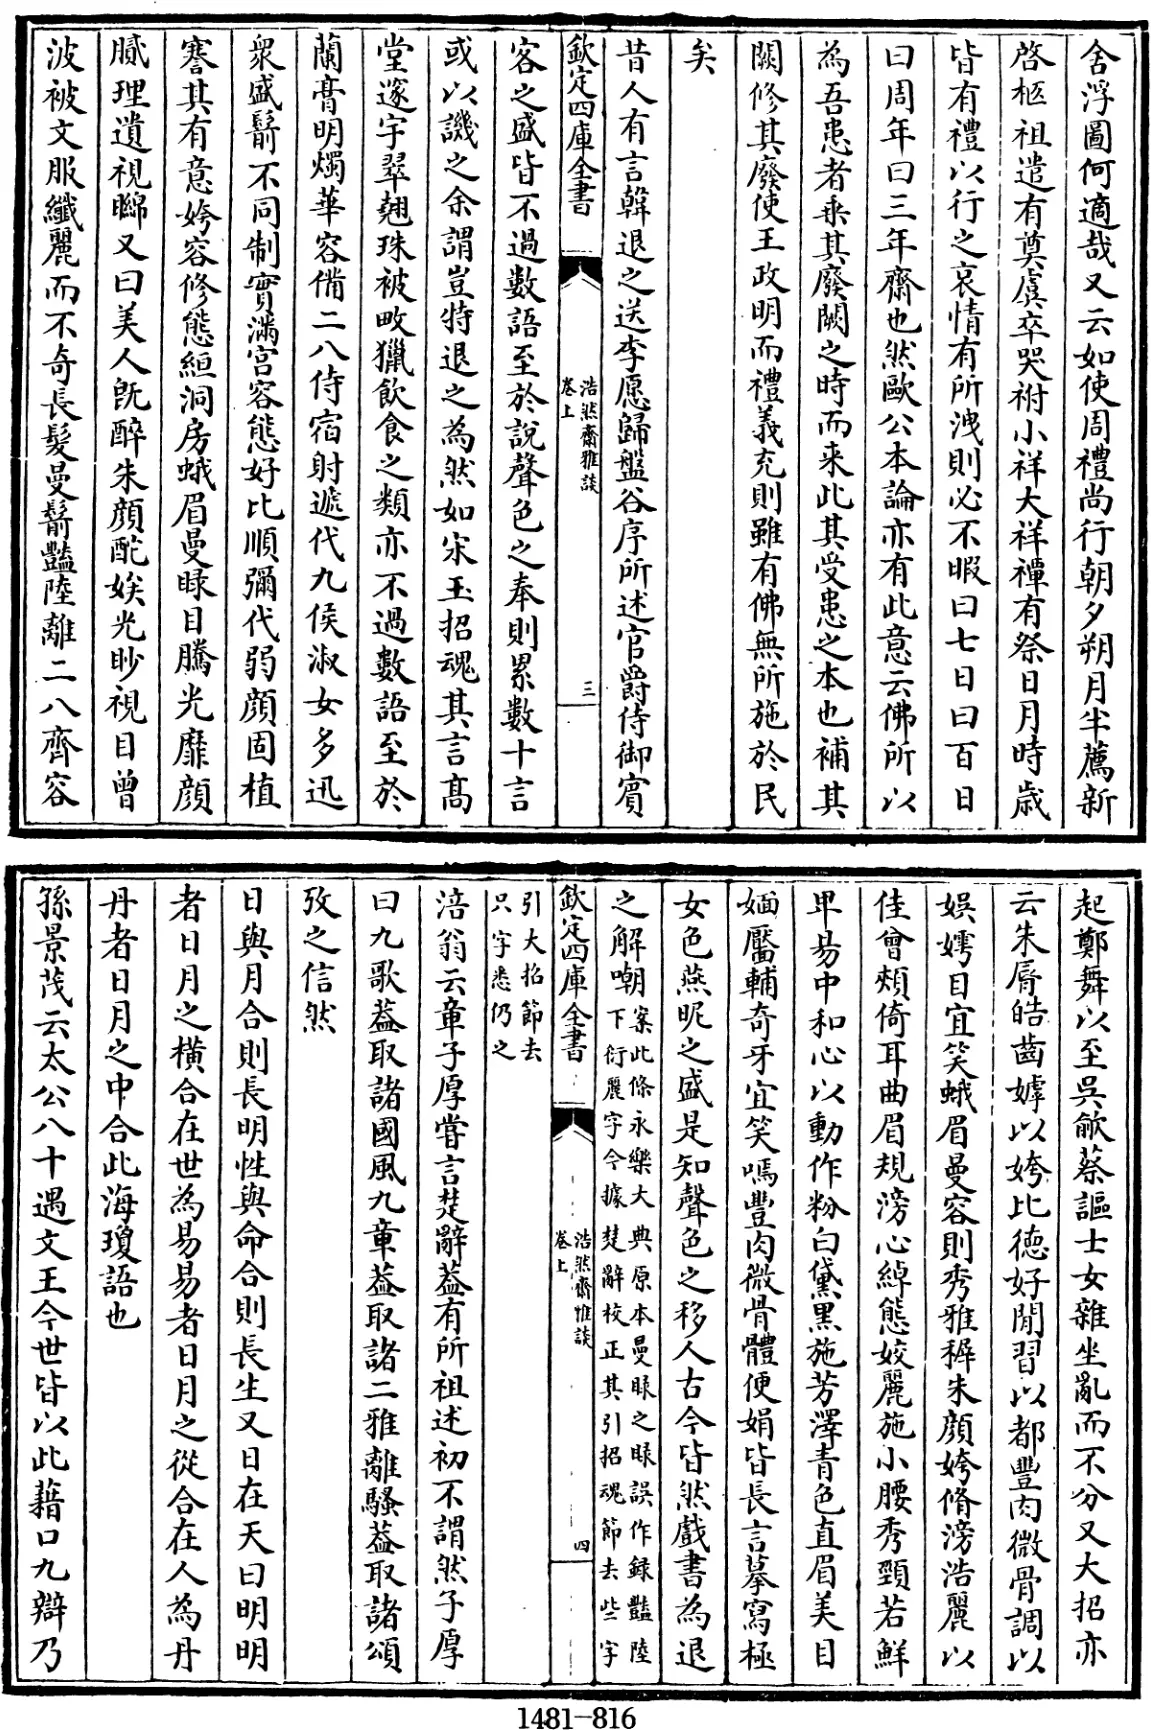 舍浮圖何適哉又云如使周禮尚行朝夕朔月半薦新
啓柩祖遣有奠虞卒哭祔小祥大祥禫有祭日月時歲
皆有禮以行之哀情有所洩則必不暇曰七日曰百日
曰周年曰三年齋也然歐公本論亦有此意云佛所以
為吾患者乗其廢闕之時而来此其受患之本也補其
闕修其廢使王政明而禮義充則雖有佛無所施於民
矣
昔人有言韓退之送李愿歸盤谷序所述官爵侍御賔
欽定四庫全書
浩然齋雅談
卷上
三
客之盛皆不過數語至於說聲色之奉則累數十言
或以譏之余謂豈特退之為然如宋玉招魂其言高
堂邃宇翠翹珠被畋獵飲食之類亦不過數語至於
蘭膏明燭華容備二八侍宿射遞代九侯淑女多迅
衆盛鬋不同制實滿宫容態好比順彌代弱顔固植
謇其有意姱容修態絙洞房蛾眉曼睩目騰光靡顔
膩理遺視矊又曰美人旣醉朱顔酡娭光眇視目曾
波被文服纖麗而不奇長髪曼鬋豔陸離二八齊容
起鄭舞以至吳歈蔡謳士女雜坐亂而不分又大招亦
云朱脣皓齒嫭以姱比德好閒習以都豐肉微骨調以
娱嫮目宜笑蛾眉曼容則秀雅穉朱顔姱脩滂浩麗以
佳曾頰倚耳曲眉規滂心綽態姣麗施小腰秀頸若鮮
卑易中和心以動作粉白黛黒施芳澤青色直眉美目
媔靨輔奇牙宜笑嘕豐肉微骨體便娟皆長言摹寫極
女色燕昵之盛是知聲色之移人古今皆然戲書為退
之解嘲案此條永樂大典原本曼睩之睩誤作録豔陸
下衍麗字今據楚辭校正其引招魂節去些字
欽定四庫全書
浩然齋雅談
卷上
四
引大招節去
只字悉仍之
涪翁云章子厚嘗言楚辭葢有所祖述初不謂然子厚
曰九歌葢取諸國風九章葢取諸二雅離騷葢取諸頌
攷之信然
日與月合則長明性與命合則長生又日在天曰明明
者日月之橫合在世為易易者日月之從合在人為丹
丹者日月之中合此海瓊語也
孫景茂云太公八十遇文王今世皆以此藉口九辯乃
1481-816